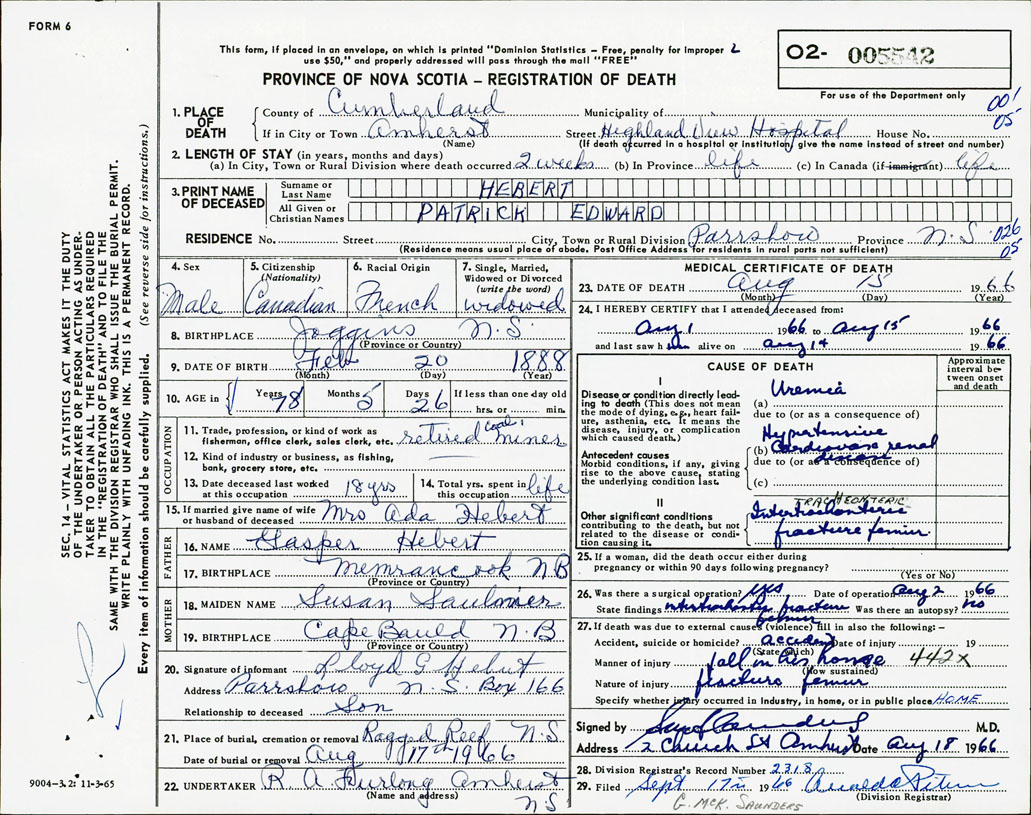 FORM 6
This form, if placed in an envelope, on which is printed "Dominion Statistics – Free, penalty for improper 2
use $50," and properly addressed will pass through the mail "FREE"
PROVINCE OF NOVA SCOTIA – REGISTRATION OF DEATH
02- 005542
For use of the Department only
001
05
1. PLACE OF DEATH
County of Cumberland Municipality of
If in City or Town Amherst Street Highland View Hospital House No.
(Name) (If death occurred in a hospital or institution, give the name instead of street and number)
2. LENGTH OF STAY (in years, months and days)
(a) In City, Town or Rural Division where death occurred 2 weeks (b) In Province life (c) In Canada (if immigrant) life
3. PRINT NAME OF DECEASED
Surname or Last Name HEBERT
All Given or Christian Names PATRICK EDWARD
RESIDENCE No. Street City, Town or Rural Division Parrsboro Province N.S. 026
05
(Residence means usual place of abode. Post Office Address for residents in rural parts not sufficient)
4. Sex Male
5. Citizenship (Nationality) Canadian
6. Racial Origin French
7. Single, Married, Widowed or Divorced (write the word) widowed
8. BIRTHPLACE Joggins N.S.
(Province or Country)
9. DATE OF BIRTH Feb 20 1888
(Month) (Day) (Year)
10. AGE in Years 78 Months 5 Days 26 If less than one day old
hrs. or min.
OCCUPATION
11. Trade, profession, or kind of work as fisherman, office clerk, sales clerk, etc. retired coal miner
12. Kind of industry or business, as fishing, bank, grocery store, etc.
13. Date deceased last worked at this occupation 18 yrs
14. Total yrs. spent in this occupation life
15. If married give name of wife or husband of deceased Mrs Ada Hebert
FATHER
16. NAME Gasper Hebert
17. BIRTHPLACE Memramcook N B
(Province or Country)
MOTHER
18. MAIDEN NAME Susan Saulnier
19. BIRTHPLACE Cape Bauld N.B
(Province or Country)
20. Signature of informant Lloyd G Hebert
Address Parrsboro N.S. Box 166
Relationship to deceased Son
21. Place of burial, cremation or removal Ragged Reef N.S
Date of burial or removal Aug 17th 1966
22. UNDERTAKER R. A Furlong Amherst
(Name and address) N.S
MEDICAL CERTIFICATE OF DEATH
23. DATE OF DEATH Aug 15 1966
(Month) (Day) (Year)
24. I HEREBY CERTIFY that I attended deceased from:
Aug 1 1966 to Aug 15 1966
and last saw him alive on Aug 14 1966
CAUSE OF DEATH
Approximate interval between onset and death
I
Disease or condition directly leading to death (This does not mean the mode of dying, e.g., heart failure, asthenia, etc. It means the disease, injury, or complication which caused death.)
(a) Uremia
due to (or as a consequence of)
Antecedent causes
Morbid conditions, if any, giving rise to the above cause, stating the underlying condition last.
Hypertensive
(b) Cardiovasc renal
disease
due to (or as a consequence of)
(c)
II
Other significant conditions contributing to the death, but not related to the disease or condition causing it.
TRACHEONTERIC
Intertrochanteric
fracture femur
25. If a woman, did the death occur either during pregnancy or within 90 days following pregnancy?
(Yes or No)
26. Was there a surgical operation? yes Date of operation Aug 2 1966
State findings intertrochanteric fracture femur Was there an autopsy? no
27. If death was due to external causes (violence) fill in also the following:–
Accident, suicide or homicide? accident Date of injury 19
(State which)
Manner of injury fall in his house 442x
(How sustained)
Nature of injury fracture femur
Specify whether injury occurred in industry, in home, or in public place HOME
Signed by M.D.
Address 2 Church St Amherst Date Aug 18 1966
28. Division Registrar's Record Number 2318
29. Filed Sept 17th 1966
(Division Registrar)
G. McK. SAUNDERS
SEC. 14 – VITAL STATISTICS ACT MAKES IT THE DUTY
OF THE UNDERTAKER OR PERSON ACTING AS UNDER-
TAKER TO OBTAIN ALL THE PARTICULARS REQUIRED
IN THE "REGISTRATION OF DEATH" AND TO FILE THE
SAME WITH THE DIVISION REGISTRAR WHO SHALL ISSUE THE BURIAL PERMIT.
WRITE PLAINLY WITH UNFADING INK. THIS IS A PERMANENT RECORD.
Every item of information should be carefully supplied. (See reverse side for instructions.)
9004-3.2: 11-3-65